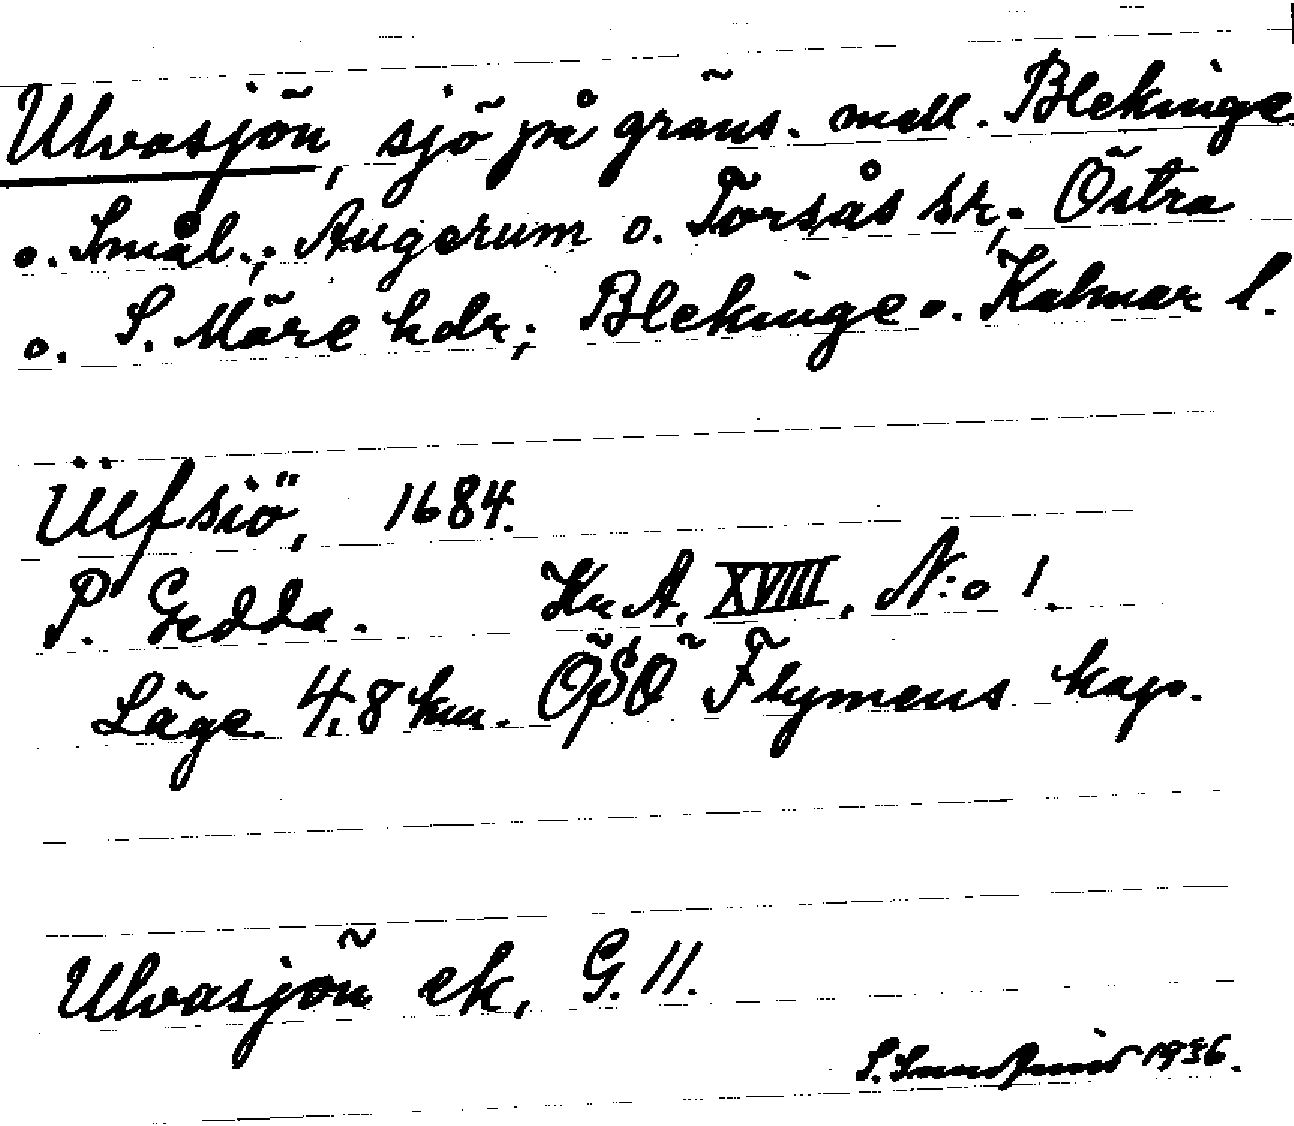 Ulvasjön, sjö på gräns. mell. Blekinge
o. Smål.; Augerum o. Torsås sk; Östra
o. S. Möre hdr; Blekinge o. Kalmar l.
Ülfsiö, 1684.
P. Gedda. Kr. A, XVIII, N:o 1.
Läge 4,8 km. ÖSÖ Flymens kap.
Ulvasjön ek, G. 11.
S. 1936.